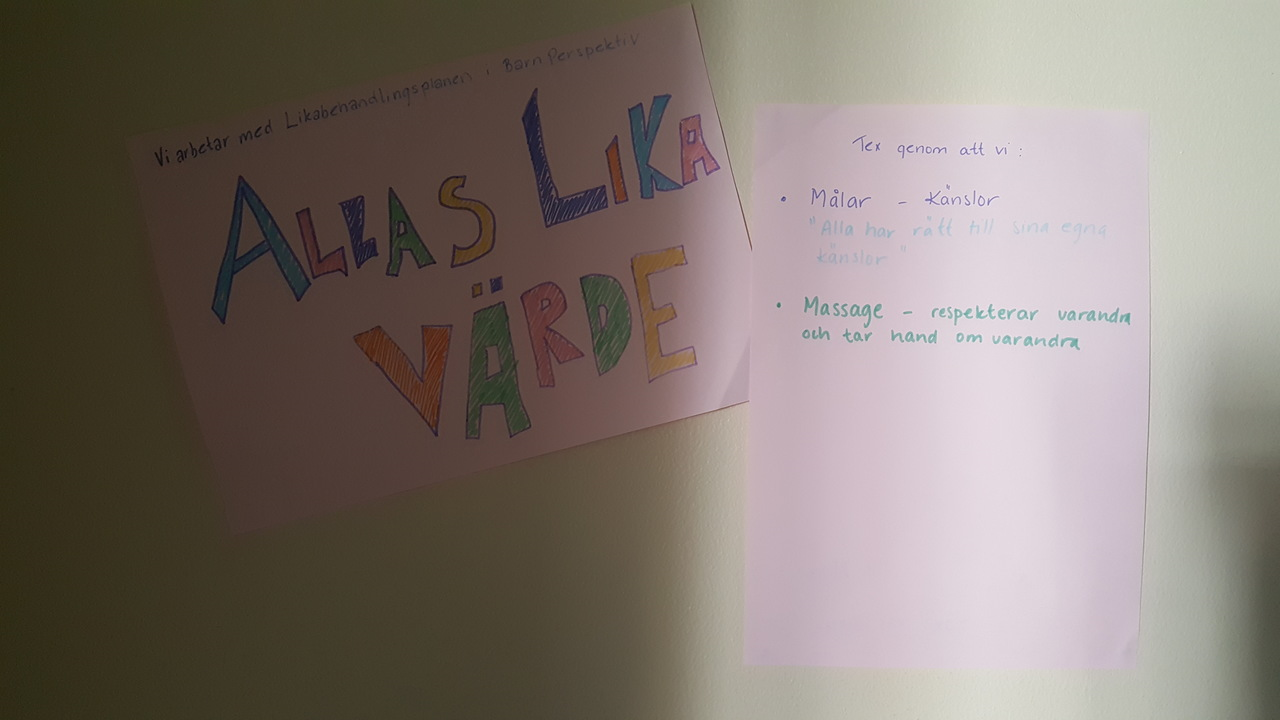 Vi arbetar med Likabehandlingsplanen i BarnPerspektiv
ALLAS LIKA
VÄRDE
Tex genom att vi :
• Målar - känslor
"Alla har rätt till sina egna
känslor"
• Massage - respekterar varandra
och tar hand om varandra